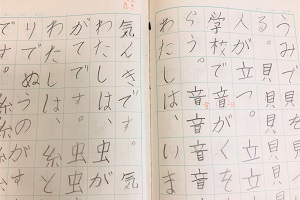 うみで貝
る。貝貝貝
人が立つ。立立
学校で音がくを
らう。音音音
わたしは、いま
気んきです。気
わたしは、虫が
がてた。虫虫
わたしは、糸と
りでぬうの
です。糸糸